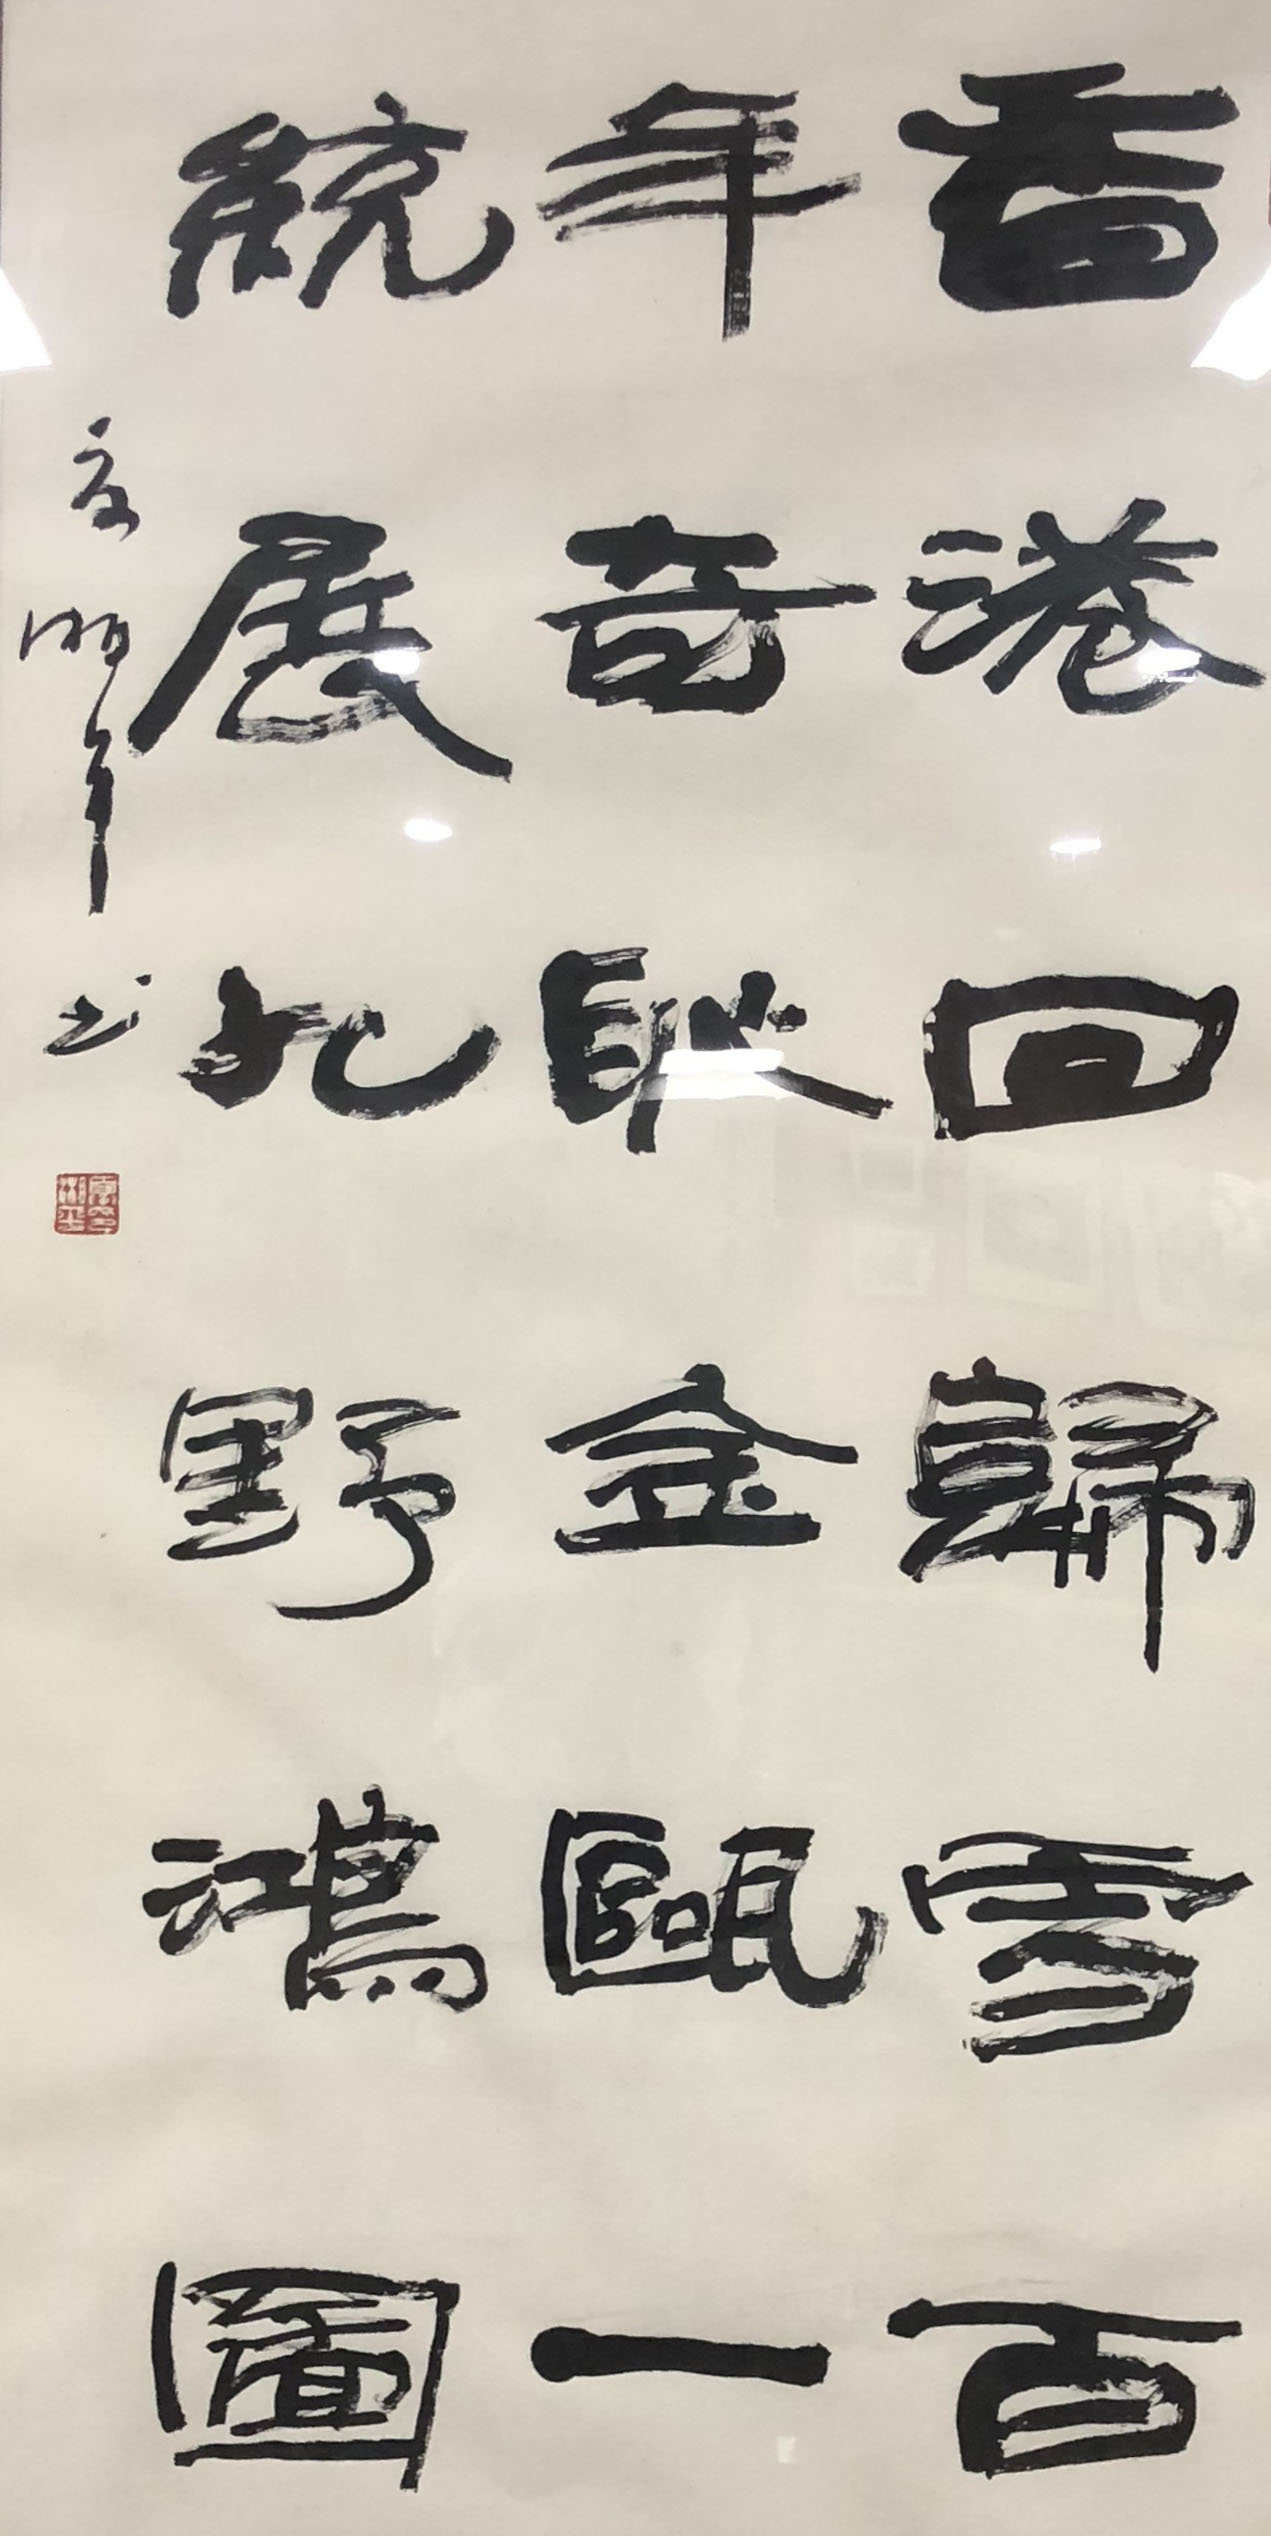 香港回歸雪百
年奇恥金甌一
統展九野鴻圖